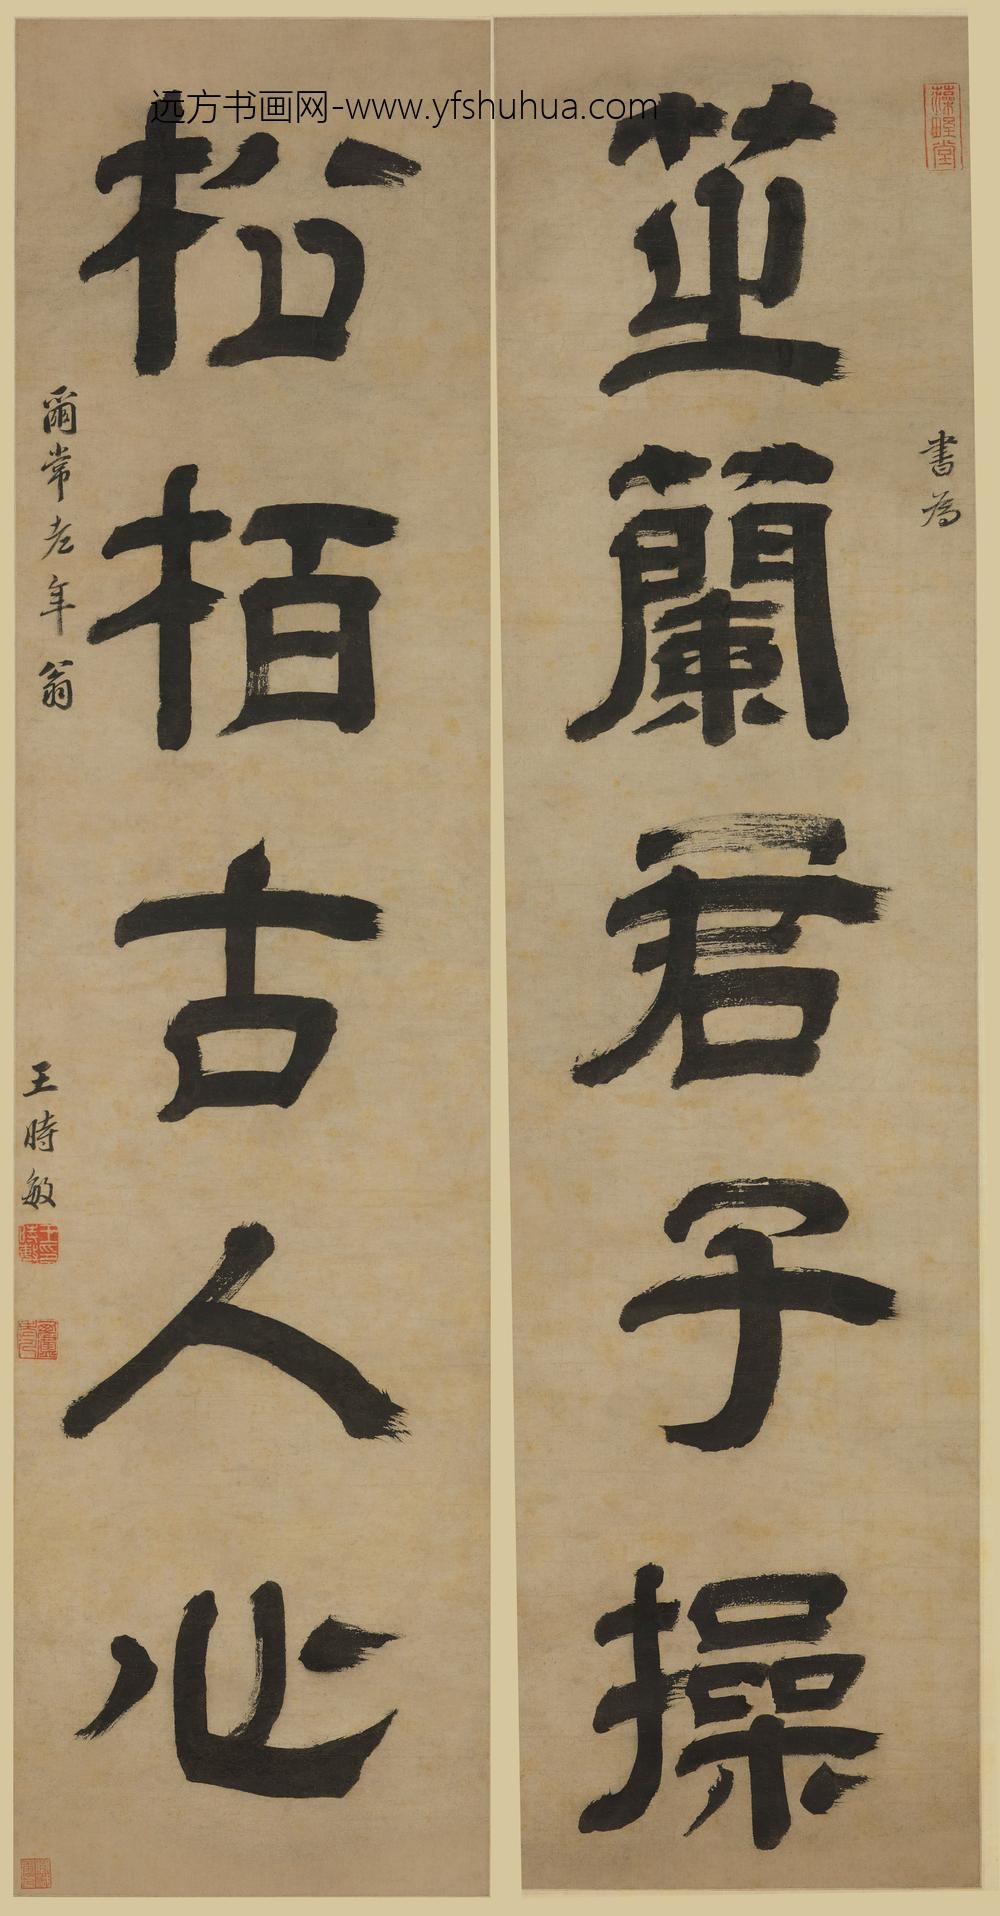 远方书画网-www.yfshuhua.com
書為
芷蘭君子操
松栢古人心
爾常老年翁
王時敏